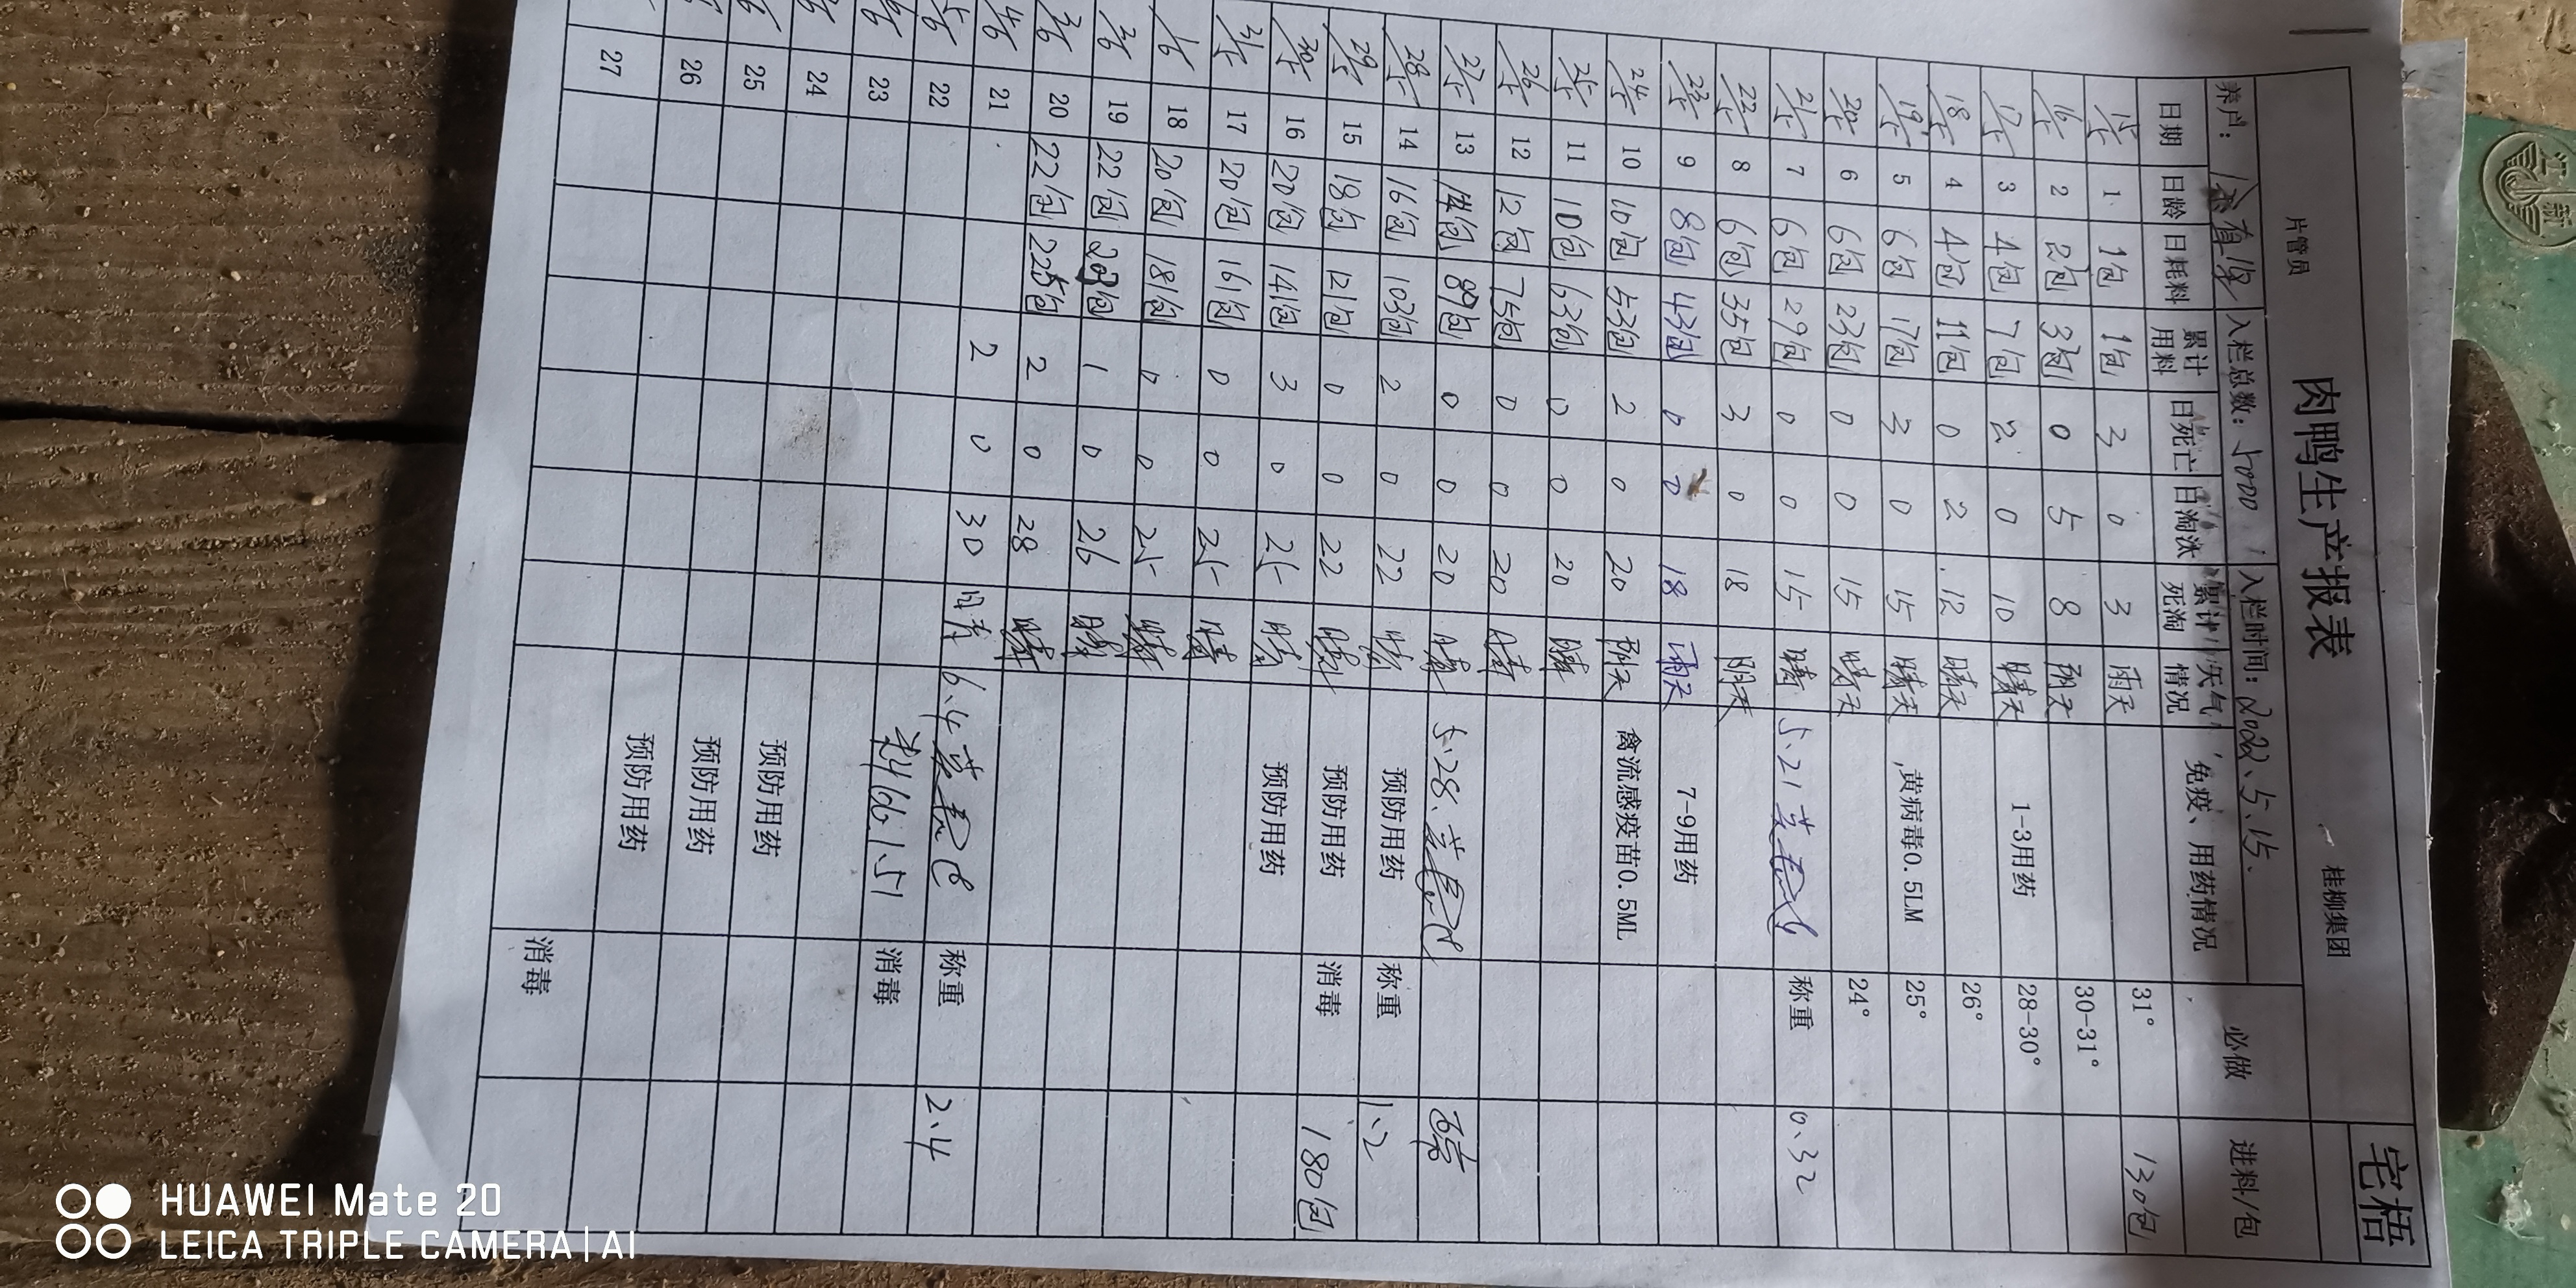 肉鸭生产报表
桂柳集团
宅梧
片管员
养户： 入栏总数：5000 入栏时间：2022.5.15.
日期 日龄 日耗料 累计用料 日死亡 日淘汰 累计死淘 天气情况 免疫、用药情况 必做 进料/包
15/5 1 1包 1包 3 0 3 雨天 31° 130包
16/5 2 2包 3包 0 5 8 阴天 30-31°
17/5 3 4包 7包 2 0 10 晴天 1-3用药 28-30°
18/5 4 4包 11包 0 2 12 晴天 26°
19/5 5 6包 17包 3 0 15 晴天 黄病毒0.5LM 25°
20/5 6 6包 23包 0 0 15 晴天 24°
21/5 7 6包 29包 0 0 15 晴 5.21 称重 0.32
22/5 8 6包 35包 3 0 18 阴天
23/5 9 8包 43包 0 0 18 雨天 7-9用药
24/5 10 10包 53包 2 0 20 阴天 禽流感疫苗0.5ML
25/5 11 10包 63包 0 0 20 晴
26/5 12 12包 75包 0 0 20 晴
27/5 13 14包 89包 0 0 20 晴 5.28.
28/5 14 16包 103包 2 0 22 晴 预防用药 称重 1.2
29/5 15 18包 121包 0 0 22 晴 预防用药 消毒 180包
30/5 16 20包 141包 3 0 25 晴 预防用药
31/5 17 20包 161包 0 0 25 晴
1/6 18 20包 181包 0 0 25 晴
2/6 19 22包 203包 1 0 26 晴
3/6 20 22包 225包 2 0 28 晴
4/6 21 2 0 30 晴 6.4
5/6 22 称重 2.4
23 料肉1.51 消毒
24
25 预防用药
26 预防用药
27 预防用药
消毒
HUAWEI Mate 20
LEICA TRIPLE CAMERA | AI